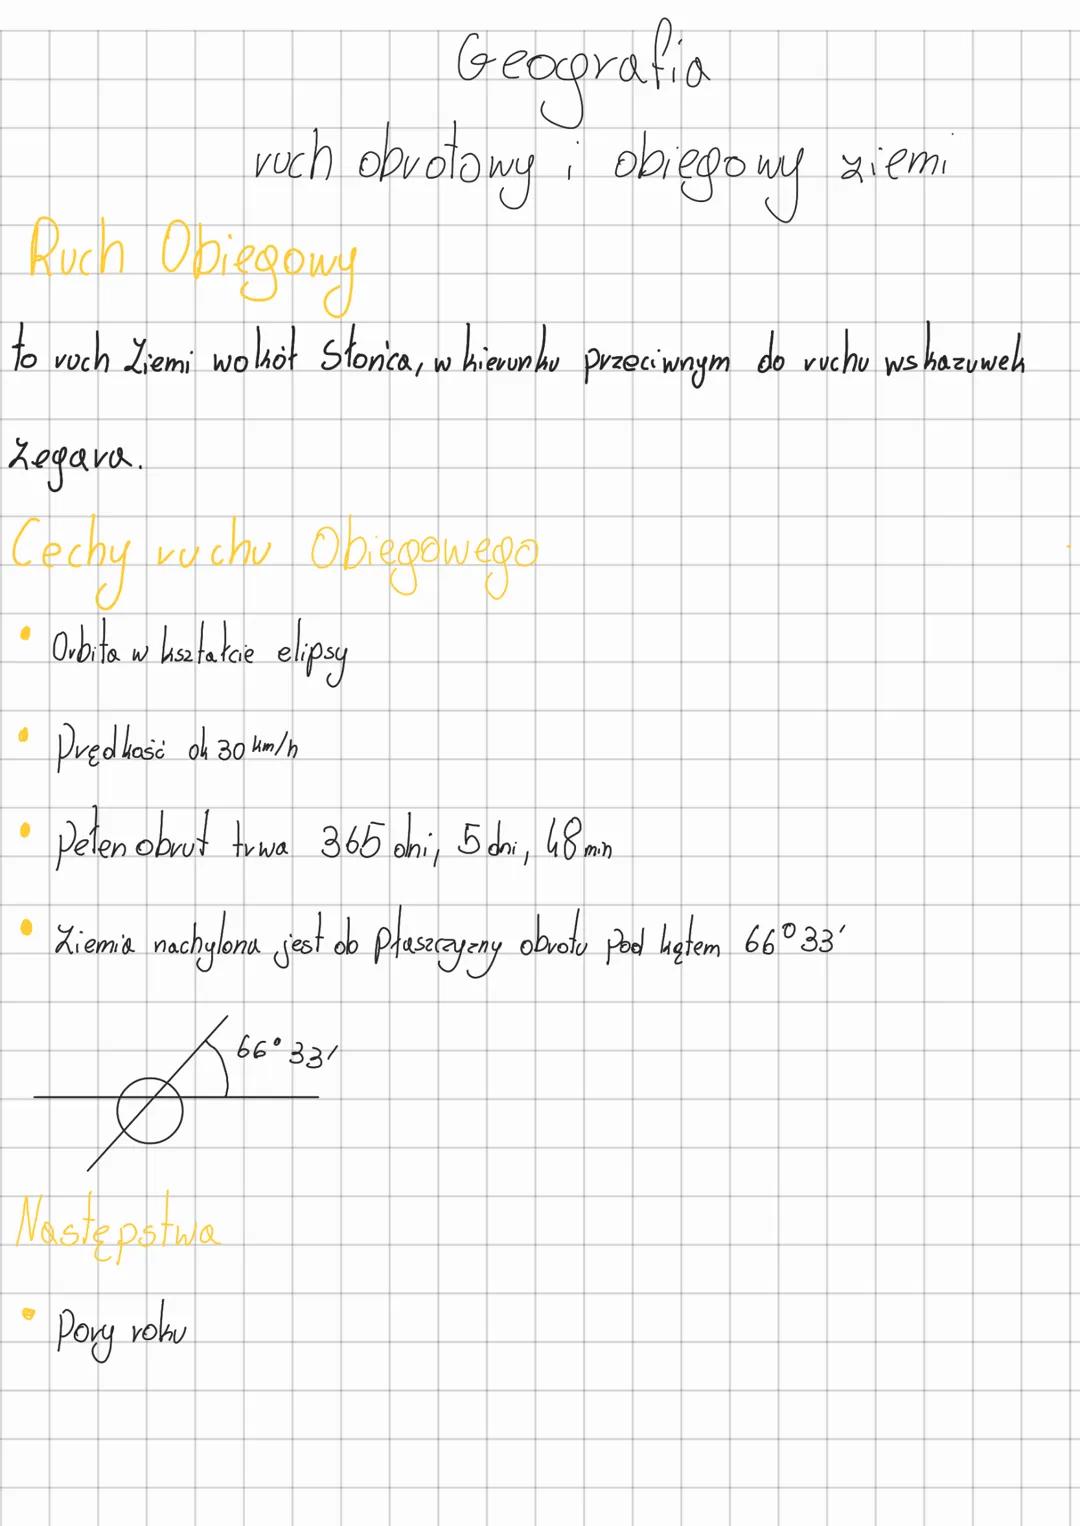 Geografia
ruch obrotowy i obiegowy ziemi
Ruch Obiegowy
to ruch Ziemi wokół Słońca, w kierunku przeciwnym do ruchu wskazuwek
zegara.
Cechy ruchu Obiegowego
• Orbita w kształcie elipsy
• Prędkość ok 30 km/h
• Pełen obrut trwa 365 dni, 5 dni, 48 min
• Ziemia nachylona jest ob płaszczyzny obrotu pod kątem 66° 33'
66° 33'
Następstwa
• Pory roku